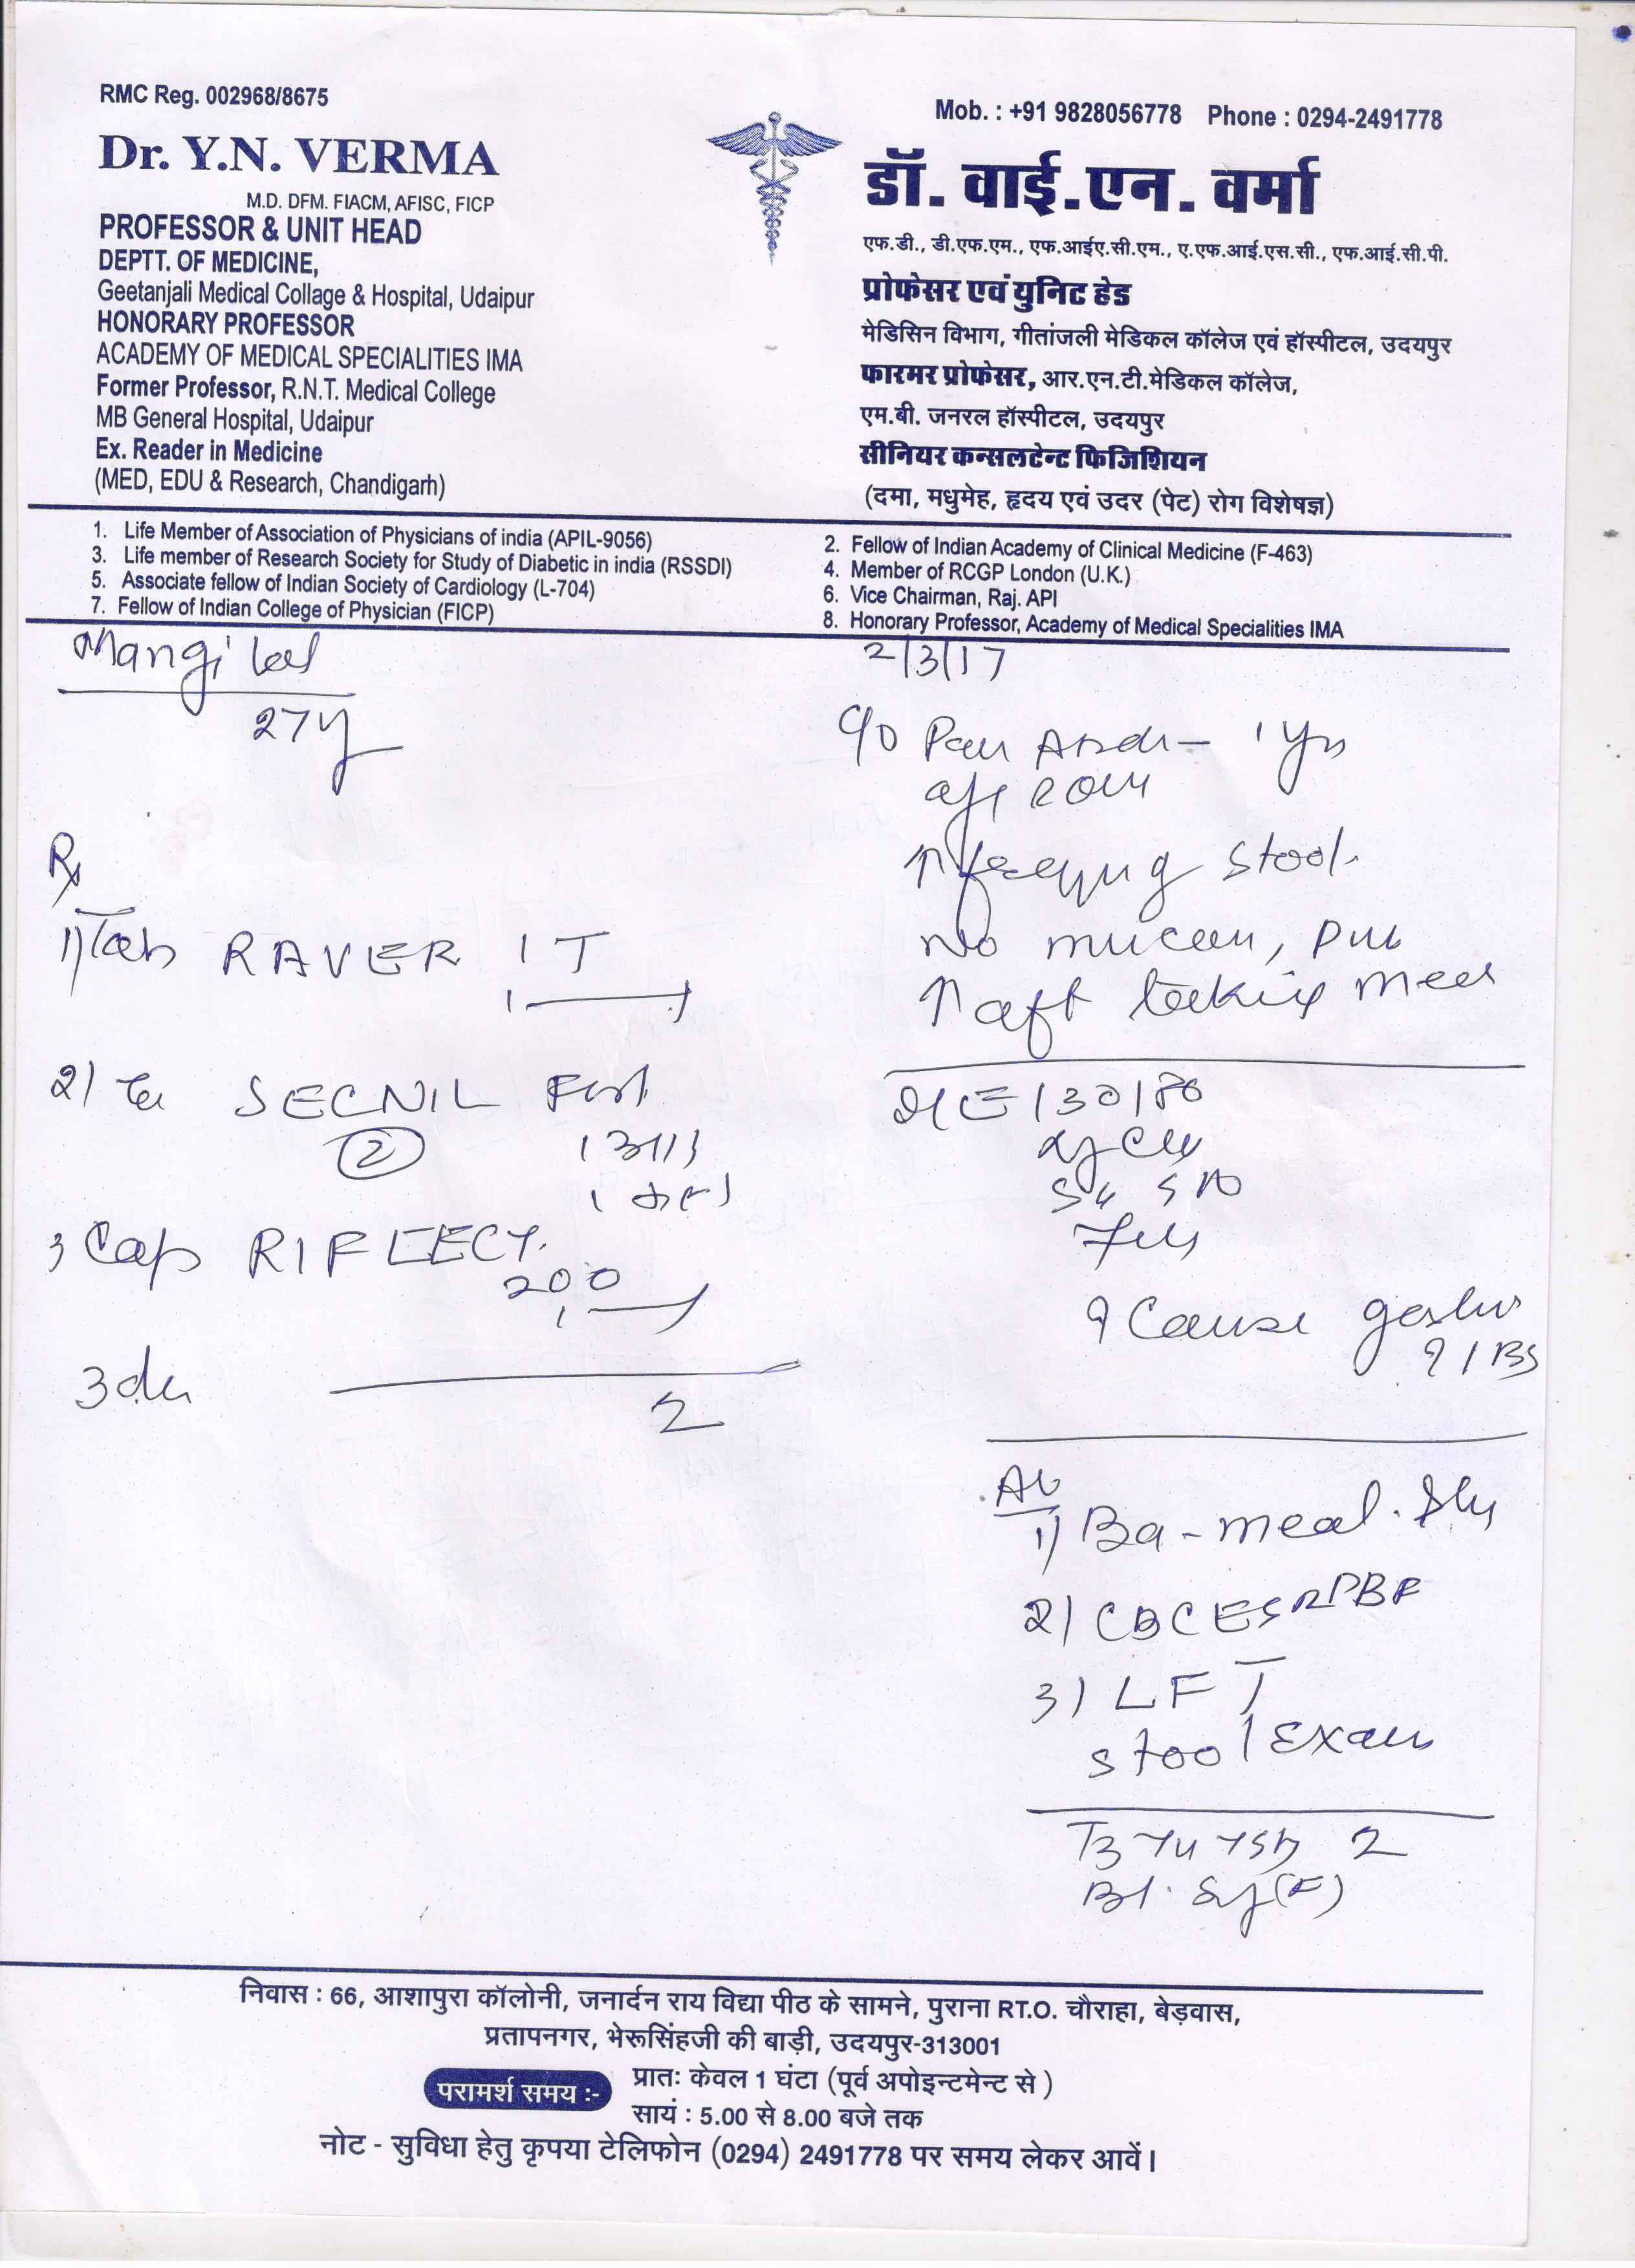 RMC Reg. 002968/8675
Dr. Y.N. VERMA
M.D. DFM. FIACM, AFISC, FICP
PROFESSOR & UNIT HEAD
DEPTT. OF MEDICINE,
Geetanjali Medical Collage & Hospital, Udaipur
HONORARY PROFESSOR
ACADEMY OF MEDICAL SPECIALITIES IMA
Former Professor, R.N.T. Medical College
MB General Hospital, Udaipur
Ex. Reader in Medicine
(MED, EDU & Research, Chandigarh)
Mob. : +91 9828056778 Phone : 0294-2491778
डॉ. वाई.एन. वर्मा
एफ.डी., डी.एफ.एम., एफ.आईए.सी.एम., ए.एफ.आई.एस.सी., एफ.आई.सी.पी.
प्रोफेसर एवं युनिट हेड
मेडिसिन विभाग, गीतांजली मेडिकल कॉलेज एवं हॉस्पीटल, उदयपुर
फारमर प्रोफेसर, आर.एन.टी.मेडिकल कॉलेज,
एम.बी. जनरल हॉस्पीटल, उदयपुर
सीनियर कन्सलटेन्ट फिजिशियन
(दमा, मधुमेह, हृदय एवं उदर (पेट) रोग विशेषज्ञ)
1. Life Member of Association of Physicians of india (APIL-9056)
2. Fellow of Indian Academy of Clinical Medicine (F-463)
3. Life member of Research Society for Study of Diabetic in india (RSSDI)
4. Member of RCGP London (U.K.)
5. Associate fellow of Indian Society of Cardiology (L-704)
6. Vice Chairman, Raj. API
7. Fellow of Indian College of Physician (FICP)
8. Honorary Professor, Academy of Medical Specialities IMA
Mangi lal
27y
Rx
1) Tab RAVER 1T
2) SECNIL Fort
2
3 Cap RIFLECT
200
2
2/3/17
C/O Pain Abdn - 1 Yrs
↑ frequency stool.
No mucous, pus
↑ aft taking meal
130/80
? Cause
? IBS
1) Ba-meal
2) CBC ESR PBF
3) LFT
Stool Exam
T3 T4 TSH 2
(F)
निवास : 66, आशापुरा कॉलोनी, जनार्दन राय विद्या पीठ के सामने, पुराना RT.O. चौराहा, बेड़वास,
प्रतापनगर, भेरूसिंहजी की बाड़ी, उदयपुर-313001
परामर्श समय :- प्रातः केवल 1 घंटा (पूर्व अपोइन्टमेन्ट से )
सायं : 5.00 से 8.00 बजे तक
नोट - सुविधा हेतु कृपया टेलिफोन (0294) 2491778 पर समय लेकर आवें।